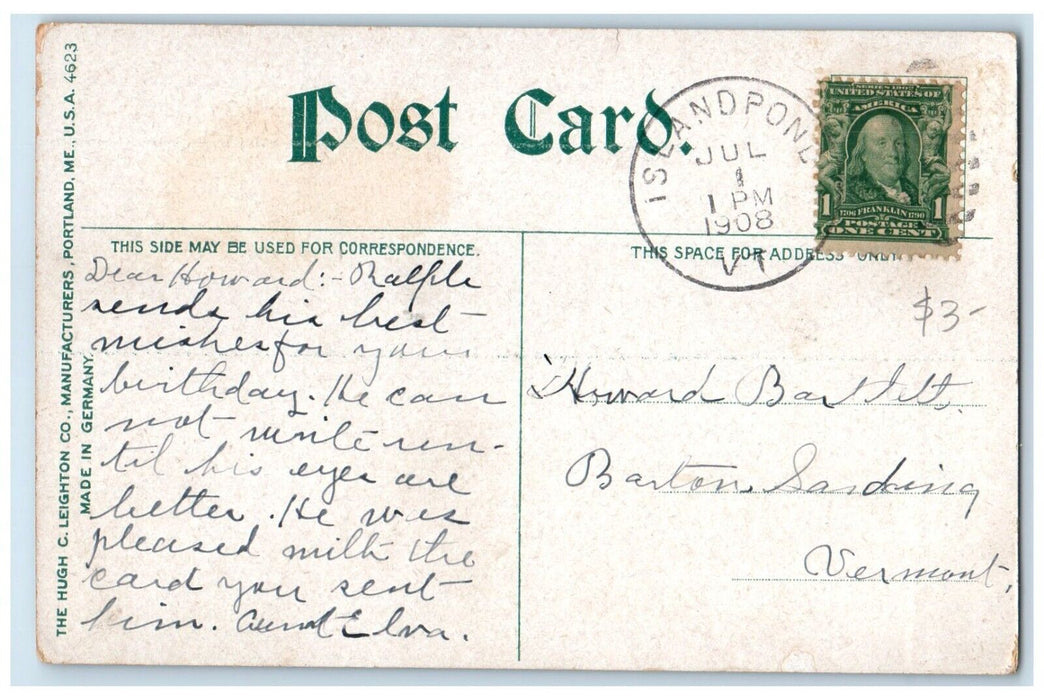 Post Card.
ISLAND POND
JUL
1
1 PM
1908
VT
SERIES 1902
UNITED STATES OF
AMERICA
1706 FRANKLIN 1790
1 1
POSTAGE
ONE CENT
THE HUGH C. LEIGHTON CO., MANUFACTURERS, PORTLAND, ME., U.S.A. 4623
MADE IN GERMANY.
THIS SIDE MAY BE USED FOR CORRESPONDENCE.
Dear Howard:- Ralph
sends his best
wishes for your
birthday. He can
not write un-
til his eyes are
better. He was
pleased with the
card you sent
him. Aunt Elva.
THIS SPACE FOR ADDRESS ONLY.
$3-
Howard Bartlett.
Barton Landing
Vermont,